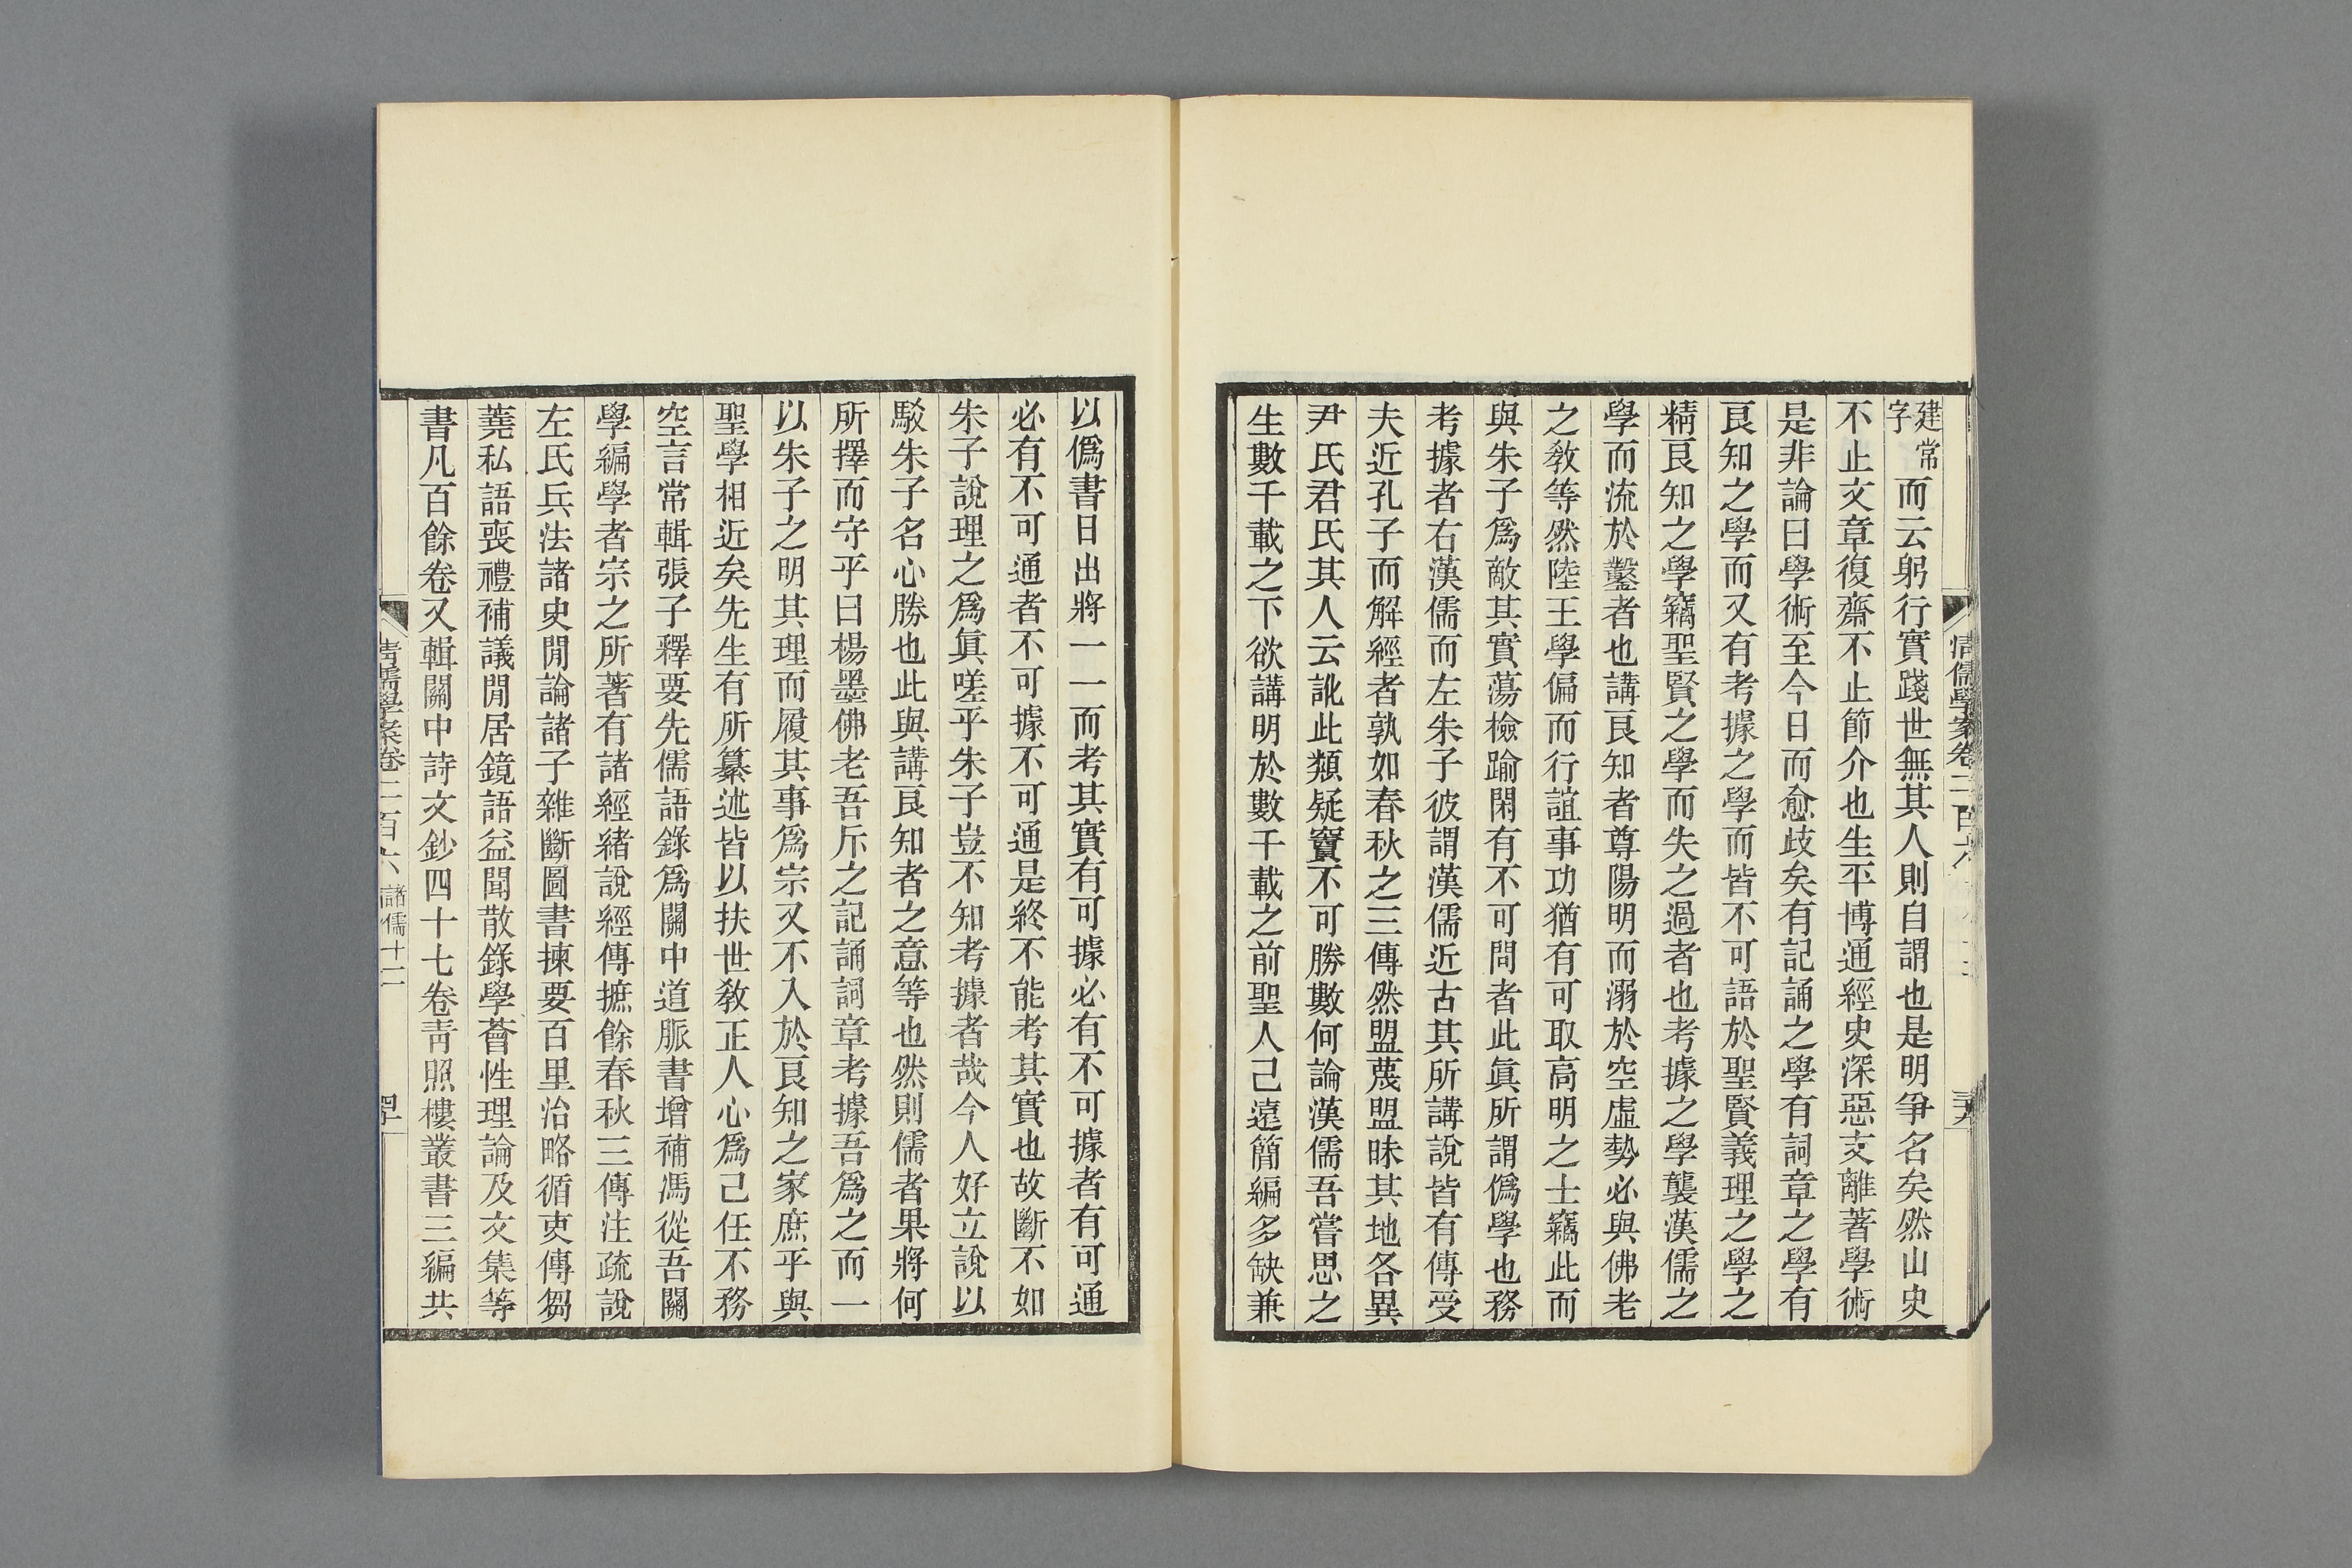 建常字而云躬行實踐世無其人則自謂也是明爭名矣然山史
不止文章復齋不止節介也生平博通經史深惡支離著學術
是非論曰學術至今日而愈歧矣有記誦之學有詞章之學有
良知之學而又有考據之學而皆不可語於聖賢義理之學之
精良知之學竊聖賢之學而失之過者也考據之學襲漢儒之
學而流於鑿者也講良知者尊陽明而溺於空虛勢必與佛老
之教等然陸王學偏而行誼事功猶有可取高明之士竊此而
與朱子爲敵其實蕩檢踰閑有不可問者此眞所謂僞學也務
考據者右漢儒而左朱子彼謂漢儒近古其所講說皆有傳受
夫近孔子而解經者孰如春秋之三傳然盟蔑盟眛其地各異
尹氏君氏其人云訛此類疑竇不可勝數何論漢儒吾嘗思之
生數千載之下欲講明於數千載之前聖人已遠簡編多缺兼
清儒學案卷二百六
以僞書日出將一一而考其實有可據必有不可據者有可通
必有不可通者不可據不可通是終不能考其實也故斷不如
朱子說理之爲眞嗟乎朱子豈不知考據者哉今人好立說以
駁朱子名心勝也此與講良知者之意等也然則儒者果將何
所擇而守乎曰楊墨佛老吾斥之記誦詞章考據吾爲之而一
以朱子之明其理而履其事爲宗又不入於良知之家庶乎與
聖學相近矣先生有所纂述皆以扶世敎正人心爲己任不務
空言常輯張子釋要先儒語錄爲關中道脈書增補馮從吾關
學編學者宗之所著有諸經緒說經傳摭餘春秋三傳注疏說
左氏兵法諸史閒論諸子雜斷圖書揀要百里治略循吏傳芻
蕘私語喪禮補議閒居鏡語益聞散錄學薈性理論及文集等
書凡百餘卷又輯關中詩文鈔四十七卷靑照樓叢書三編共
清儒學案卷二百六 諸儒十二